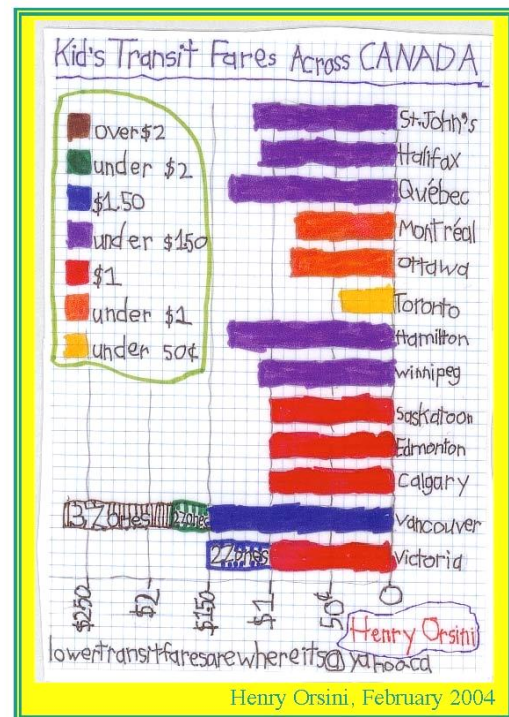 Kid's Transit Fares Across CANADA
over $2
under $2
$1.50
under $150
$1
under $1
under 50¢
St.John's
Halifax
Québec
Montréal
Ottawa
Toronto
Hamilton
Winnipeg
Saskatoon
Edmonton
Calgary
3 Zones 2 Zones Vancouver
2 Zones Victoria
$250 $2 $150 $1 50¢ 0
Henry Orsini
lowertransitfaresarewhereits@yahooca
Henry Orsini, February 2004